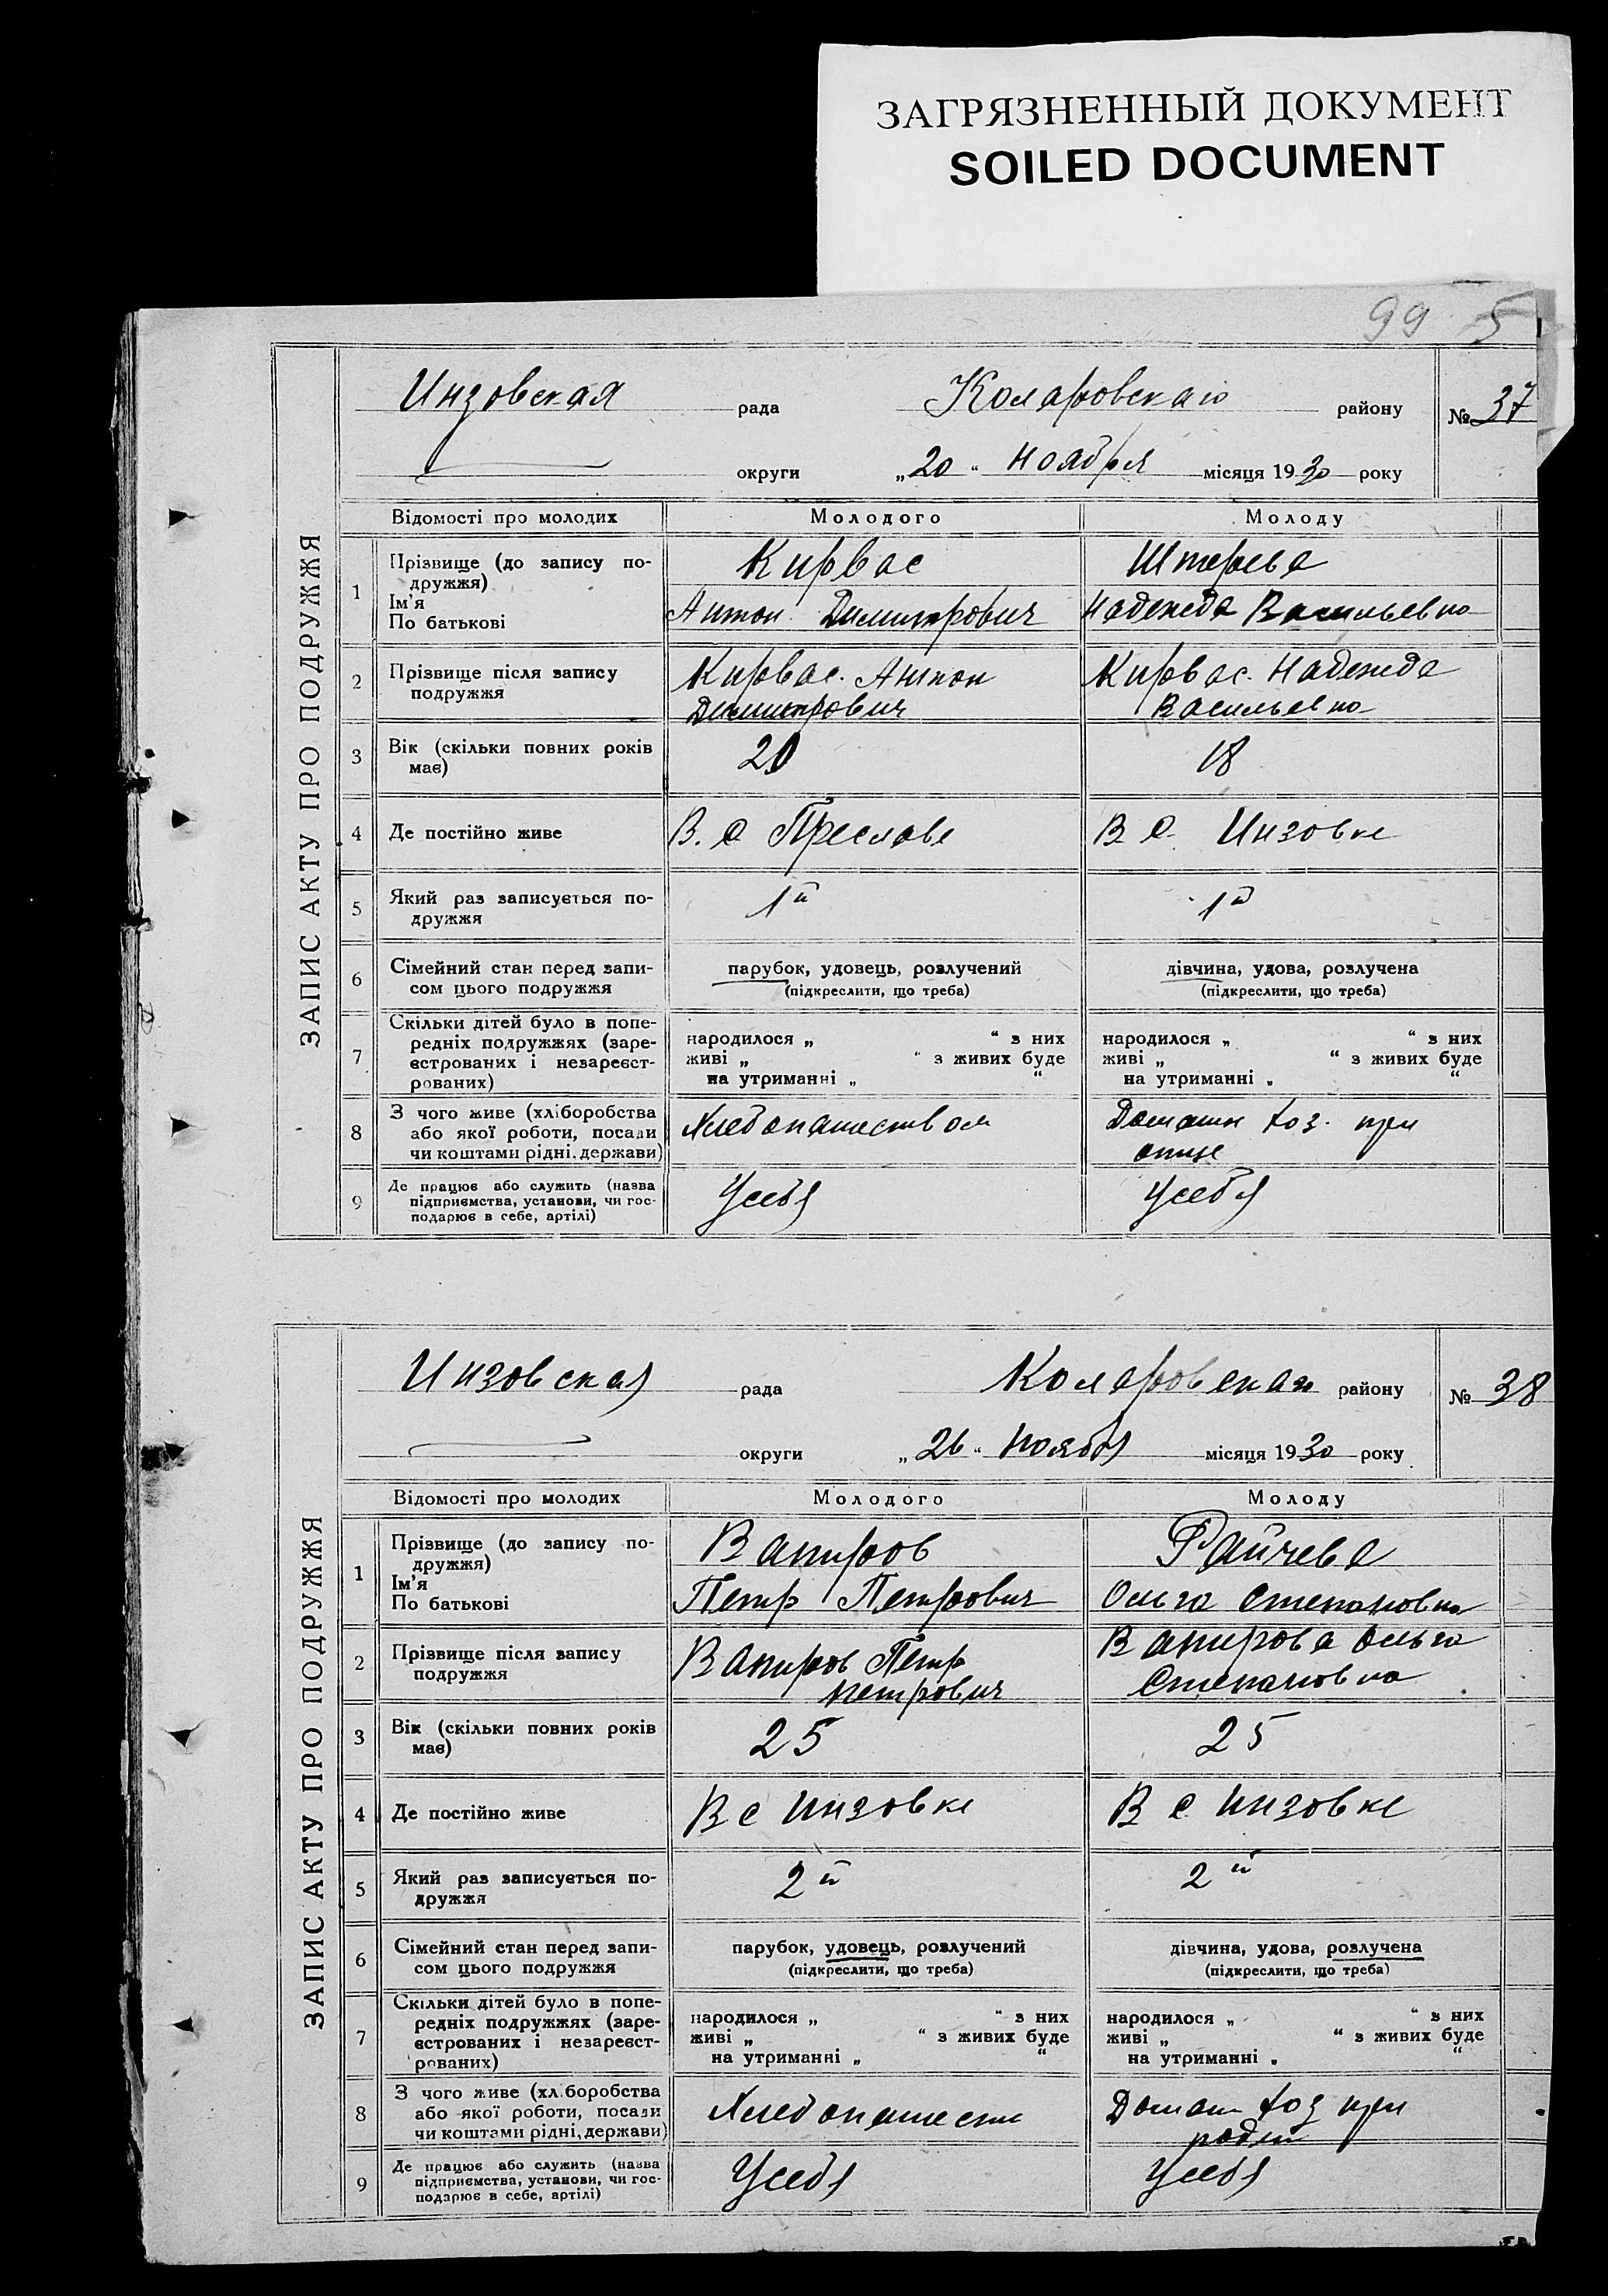 ЗАГРЯЗНЕННЫЙ ДОКУМЕНТ
SOILED DOCUMENT
99 5
ЗАПИС АКТУ ПРО ПОДРУЖЖЯ
Инзовская рада Коларовскаго району № 37
округи „20“ ноября місяця 1930 року
Відомості про молодих Молодого Молоду
1 Прізвище (до запису по-
дружжя)
Ім'я
По батькові
Кирвас Штерева
Антон Димитрович Надежда Васильевна
2 Прізвище після запису
подружжя
Кирвас. Антон
Димитрович
Кирвас. Надежда
Васильевна
3 Вік (скільки повних років
має)
20 18
4 Де постійно живе В. с Преславе В с. Инзовке
5 Який раз записується по-
дружжя
1й 1й
6 Сімейний стан перед запи-
сом цього подружжя
парубок, удовець, розлучений
(підкреслити, що треба)
дівчина, удова, розлучена
(підкреслити, що треба)
7 Скільки дітей було в попе-
редніх подружжях (заре-
єстрованих і незареєст-
рованих)
народилося „ “ з них
живі „ “ з живих буде
на утриманні „ “
народилося „ “ з них
живі „ “ з живих буде
на утриманні „ “
8 З чого живе (хліборобства
або якої роботи, посади
чи коштами рідні, держави)
Хлебопашеством
Домашн хоз. при
отце
9 Де працює або служить (назва
підприємства, установи, чи гос-
подарює в себе, артілі)
Усебя Усебя
ЗАПИС АКТУ ПРО ПОДРУЖЖЯ
Инзовская рада Коларовская району № 38
округи „26“ ноября місяця 1930 року
Відомості про молодих Молодого Молоду
1 Прізвище (до запису по-
дружжя)
Ім'я
По батькові
Вапиров Райчева
Петр Петрович Ольга Степановна
2 Прізвище після запису
подружжя
Вапиров Петр
петрович
Вапирова Ольга
Степановна
3 Вік (скільки повних років
має)
25 25
4 Де постійно живе В с Инзовке В с Инзовке
5 Який раз записується по-
дружжя
2й 2й
6 Сімейний стан перед запи-
сом цього подружжя
парубок, удовець, розлучений
(підкреслити, що треба)
дівчина, удова, розлучена
(підкреслити, що треба)
7 Скільки дітей було в попе-
редніх подружжях (заре-
єстрованих і незареєст-
рованих)
народилося „ “ з них
живі „ “ з живих буде
на утриманні „ “
народилося „ “ з них
живі „ “ з живих буде
на утриманні „ “
8 З чого живе (хліборобства
або якої роботи, посади
чи коштами рідні, держави)
Хлебопашеств
Домаш хоз при
родит
9 Де працює або служить (назва
підприємства, установи, чи гос-
подарює в себе, артілі)
Усебя Усебя